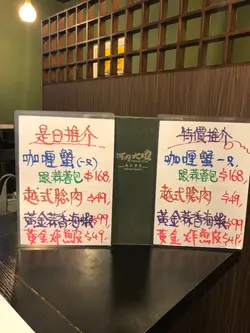 是日推介
咖喱蟹(一只)
跟蒜蓉包 $168
越式騐肉 $49
黃金蒜香海蝦 $99
黃金炸魚皮 $49
特價推介
咖喱蟹一只
跟蒜蓉包 $168
越式騐肉 $49
黃金蒜香海蝦 $99
黃金炸魚皮 $49